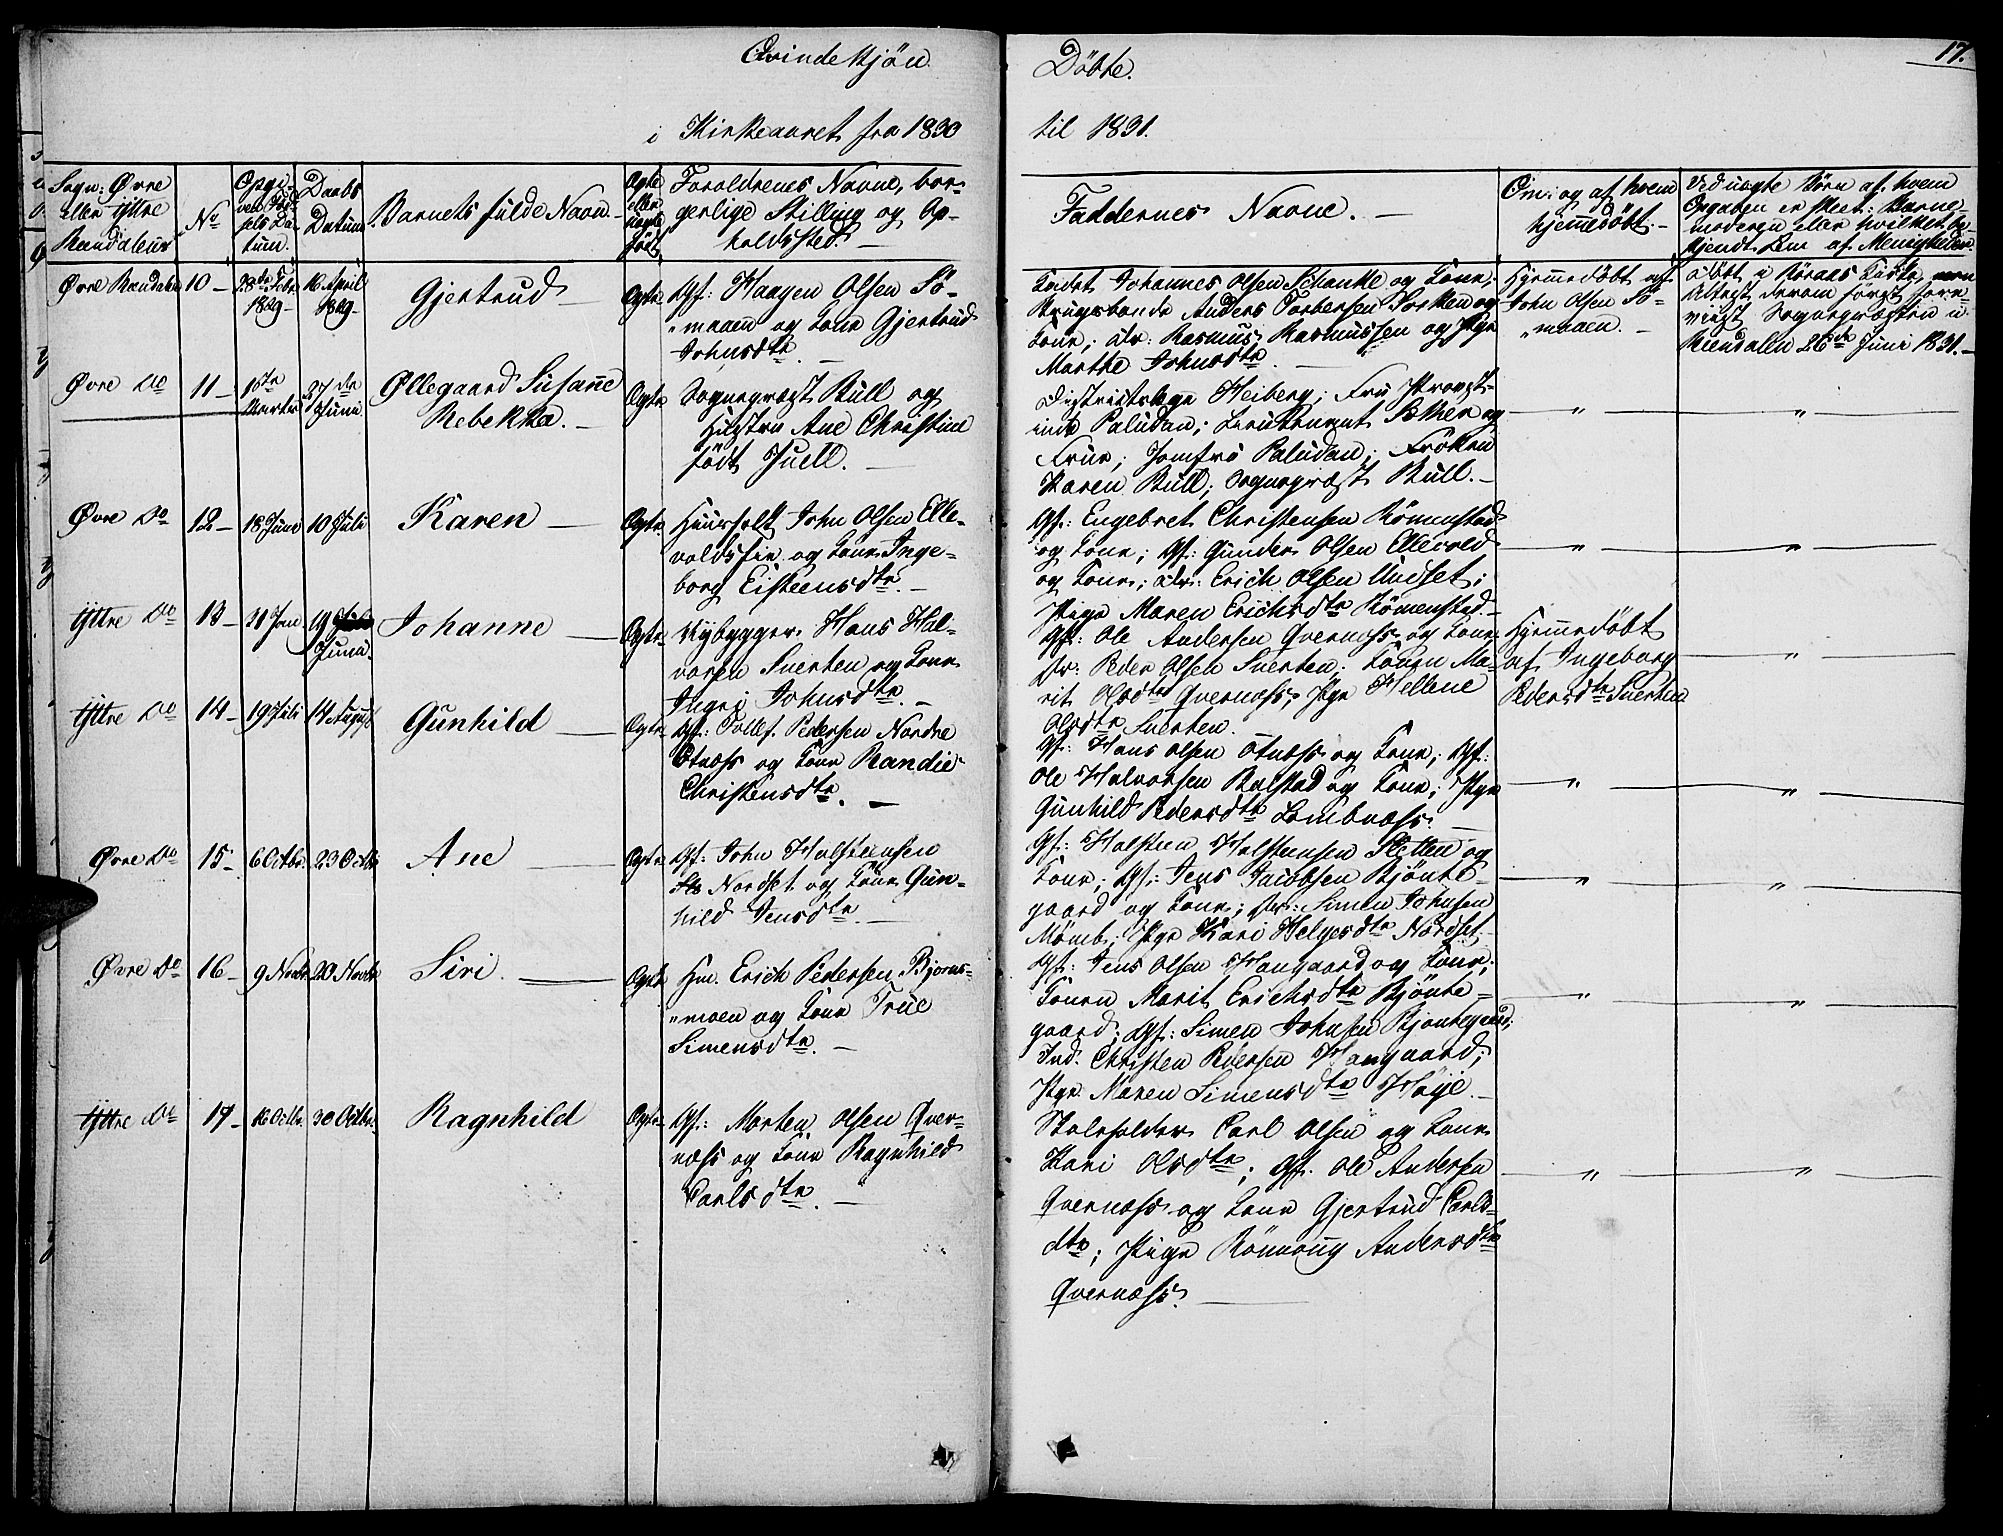 Qvindekjön
Döbte.
17.
i Kirkeaaret fra 1830
til 1831.
Sogn: Øvre
eller Yttre
Rendalens
No
Opgi-
ven Föd-
sels Da-
tum.
Daabs
Datum
Barnets fulde Navn
Ægte
eller
uægte
födt
Foroldrenes Navne, bor-
gerlige Stilling og Op-
holdssted. —
Faddernes Navne. —
Om og af hvem
hjemmedöbt. —
Ved uægte Börn af hvem
Opgaven er skeet: Barne-
moderen eller hvilket be-
kjendt Lem af Menigheden
Øvre Rendalen
10 —
28de Febr
1829
16 April
1829
Gjertrud —
Ægte
Gf: Haagen Olsen Sö-
maaen og Kone Gjertrud
Johnsdtr. —
Johannes Olsen Schancke og Kone;
Brugsbonde Anders Torbersen og
Kone; Dr: Rasmus Rasmussen og Pige
Marthe Johnsdtr —
Hjemmedöbt af
John Olsen Sö-
maaen. —
Döbt i Röraas Kirke, men
Attest derom först fore-
viist Sognepræsten i
Rendalen 26de Juni 1831. —
Øvre Do
11 —
27de
Juni
Øllegaard Susanne
Rebekka. —
Ægte
Sognepræst Bull og
Hustru Ane Christine
födt Juell. —
Districtslæge Heiberg; Fru Provst-
inde Paludan; Lieutenant og
Frue; Jomfru Paludan; Fröken
Karen Bull; Sognepræst Bull. —
— " —
— " —
Øvre Do
12 —
18 Juni
10 Juli
Karen —
Ægte
Huusfolk John Olsen Elle-
voldsseie og Kone Inge-
borg Eisteensdtr. —
Gf: Engebret Christensen Römenstad
og Kone; Gf: Gunder Olsen Ellevold
og Kone; Dr: Erich Olsen Undset;
Pige Maren Erichsdtr Römenstad. —
— " —
— " —
Yttre Do
13 —
31 Jan
19
Juni.
Johanne —
Ægte
Nybygger Hans Hal-
vorsen Suerken og Kone
Ingri Johnsdtr. —
Gf: Ole Andersen Qvernæss og Kone
Dr: Peder Olsen Suerken; Konen Ma-
rit Olsdtr Qvernæss; Pige Hellene
Olsdtr Suerken.
Hjemmedöbt
af Ingeborg
Pedersdtr Suerken
— " —
Yttre Do
14 —
19 Juli
14 August
Gunhild —
Ægte
Gf: Tollef Pedersen Nordre
Otnæss og Kone Randie
Christensdtr. —
Gf: Hans Olsen Otnæss og Kone; Gf:
Ole Halvorsen Bolstad og Kone; Pige
Gunhild Pedersdtr Lombnæss. —
— " —
— " —
Øvre Do
15 —
6 Octbr.
23 Octbr
Ane —
Ægte
Gf: John Halsteensen
Nordset og Kone Gun-
hild Jensdtr. —
Gf: Halsteen Halsteensen Sletten og
Kone; Gf: Jens Jacobsen Bjönte-
gaard og Kone; Dr: Simen Johnsen
Mömb; Pige Kari Helgesdtr Nordset. —
— " —
— " —
Øvre Do
16 —
9 Novbr
20 Novbr
Siri. —
Ægte
Hm. Erich Pedersen Bjørns-
moen og Kone True
Simensdtr. —
Gf: Jens Olsen Haugaard og Kone;
Konen Marit Erichsdtr Bjönte-
gaard; Gf: Simen Johnsen Bjöntegaard;
Ind: Christen Pedersen Haugaard;
Pige Maren Simensdtr Höije. —
— " —
— " —
Yttre Do
17 —
16 Octbr.
30 Octbr.
Ragnhild
Ægte
Gf: Morten Olsen Qver-
næss og Kone Ragnhild
Carlsdtr. —
Skoleholder Carl Olsen og Kone
Kari Olsdtr; Gf. Ole Andersen
Qvernæss og Kone Gjertrud Carls-
dtr; Pige Rönnoug Andersdtr
Qvernæss. —
— " —
— " —